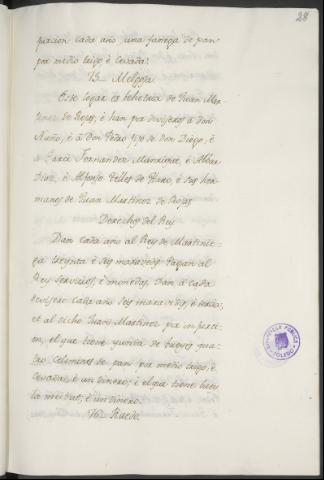 28
puracion cada año una fanega de pan
por medio trigo, è cevada.
15. Melgosa
Este logar es behetria de Juan Mar-
tinez de Rojas, è han por deviseros à don
Nuño, è à don Pedro fijo de don Diego, è
à Garci Fernandez Manrique, è Alvar
Diaz, è Alfonso Tellez de Haro, è sus her-
manos de Juan Martinez de Rojas.
Derechos del Rey
Dan cada año al Rey de Martinie-
ga treynta è seis maravedis. Pagan al
Rey servicios, è monedas. Dan à cada
devisero cada año seis maravedis, è
et al dicho Juan Martinez por infurcio-
n, el que tiene yunta de bueyes qua-
tro celemines de pan por medio trigo, è
cevada, è un dinero; è el que tiene buey
la meitat, è un dinero.
16. Ruedo.
BIBLIOTECA PUBLICA
TOLEDO